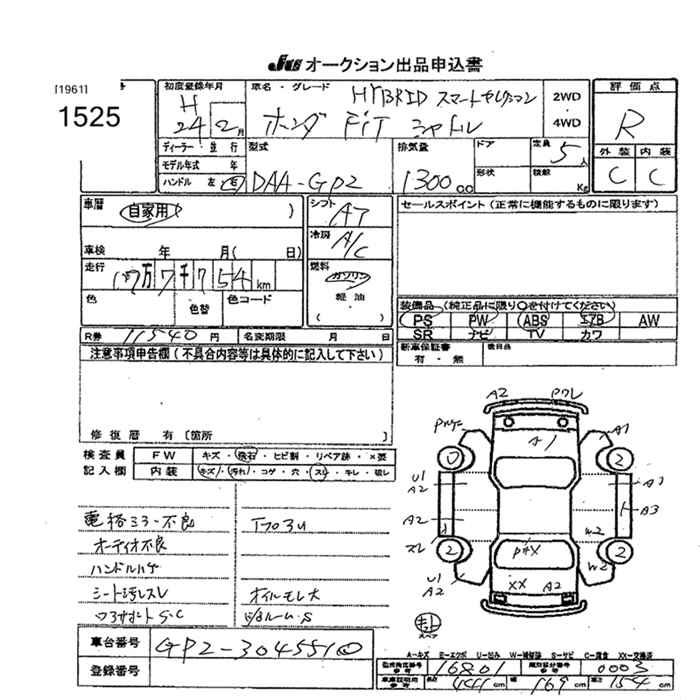 JU オークション出品申込書
[1961]
1525
初度登録年月
H 24 2月
車名・グレード
HYBRID スマートセレクション
ホンダ FIT シャトル
2WD
・
4WD
評価点
R
外装 内装
C C
ディーラー・並行
モデル年式 年
ハンドル 左 右
型式
DAA-GP2
排気量
1300cc
ドア
形状
定員
5人
積載
Kg
車歴
自家用 )
シフト
AT
冷房
A/C
車検 年 月( 日)
走行
万 7千754km
燃料
ガソリン
軽油
( )
色
色替
色コード
セールスポイント(正常に機能するものに限ります)
装備品(純正品に限り○を付けてください)
PS PW ABS エアB AW
SR ナビ TV カワ
R券 11540円
名変期限 月 日
新車保証書
有・無
後日品
注意事項申告欄(不具合内容等は具体的に記入して下さい)
修復歴 有〔箇所
検査員
記入欄
FW キズ・飛石・ヒビ割・リペア跡・×要
内装 キズ・汚れ・コゲ・穴・スレ・キレ・破レ
電格ミラー不良
オーディオ不良
ハンドルハゲ
シート汚レスレ
コアサポートS・C
オイルモレ大
A2
A1
A1
2
2
U1
A2
A1
A3
A2
スレ
W2
2
2
U1
A2
W2
XX A2
スペア
車台番号 GP2-3045510
登録番号
A-キズ E-エクボ U-凹み W-補修跡 S-サビ C-腐食 XX-交換済
型式指定番号 16801
類別区分番号 0003
441cm 169cm 154cm